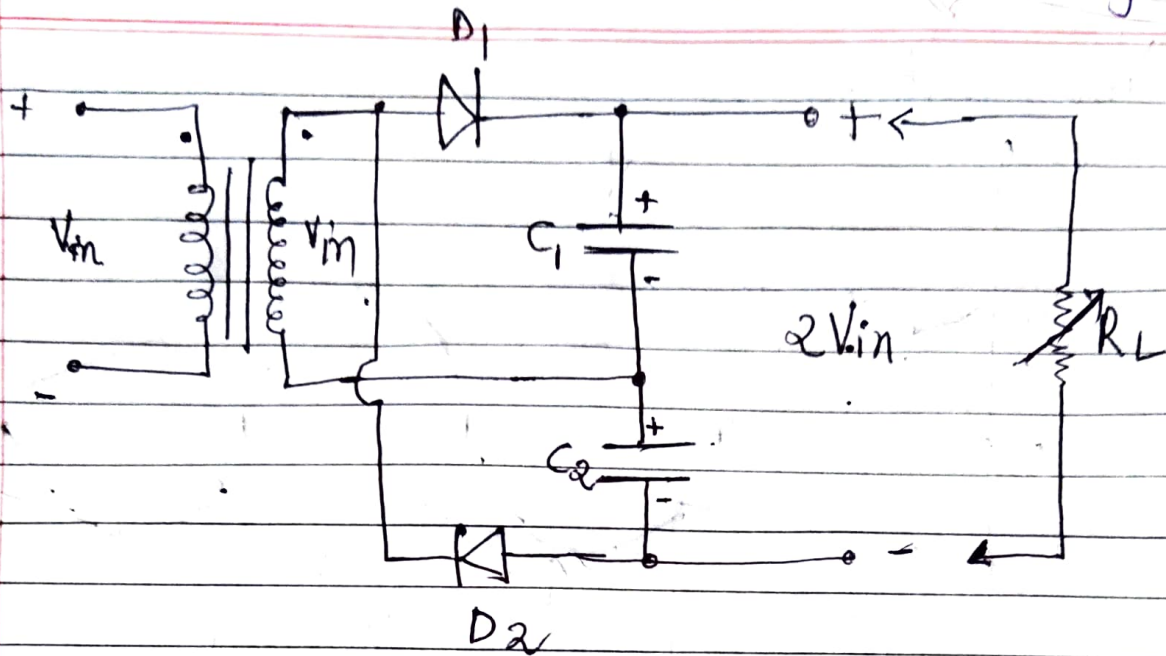 D1
+
+
Vin
Vin
C1
+
-
2Vin
RL
-
+
C2
-
-
D2